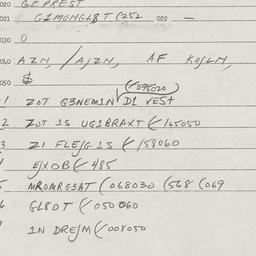 020 GE PREST
021 GIMONGL8T (252 022 —
030 0
040 AZN, /AJZN, AF KOJLN,
050 $
(/095020)
1 ZOT G3NEMIN D1 VEST
2 ZOT 1S UG1BRAXT (/165050
3 Z1 FLEJG1S (/158060
EJXOB (/485
MROMRG3AT (068030 (568 (069
6 GL8OT (/050060
1N DREJM (/008050